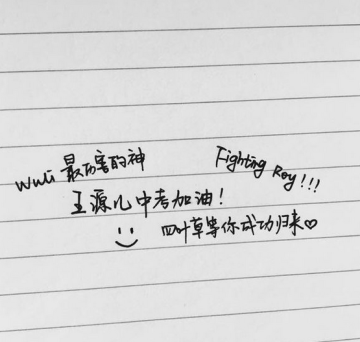 wuli 最厉害的神
Fighting Roy!!!
王源儿中考加油!
四叶草等你成功归来♡